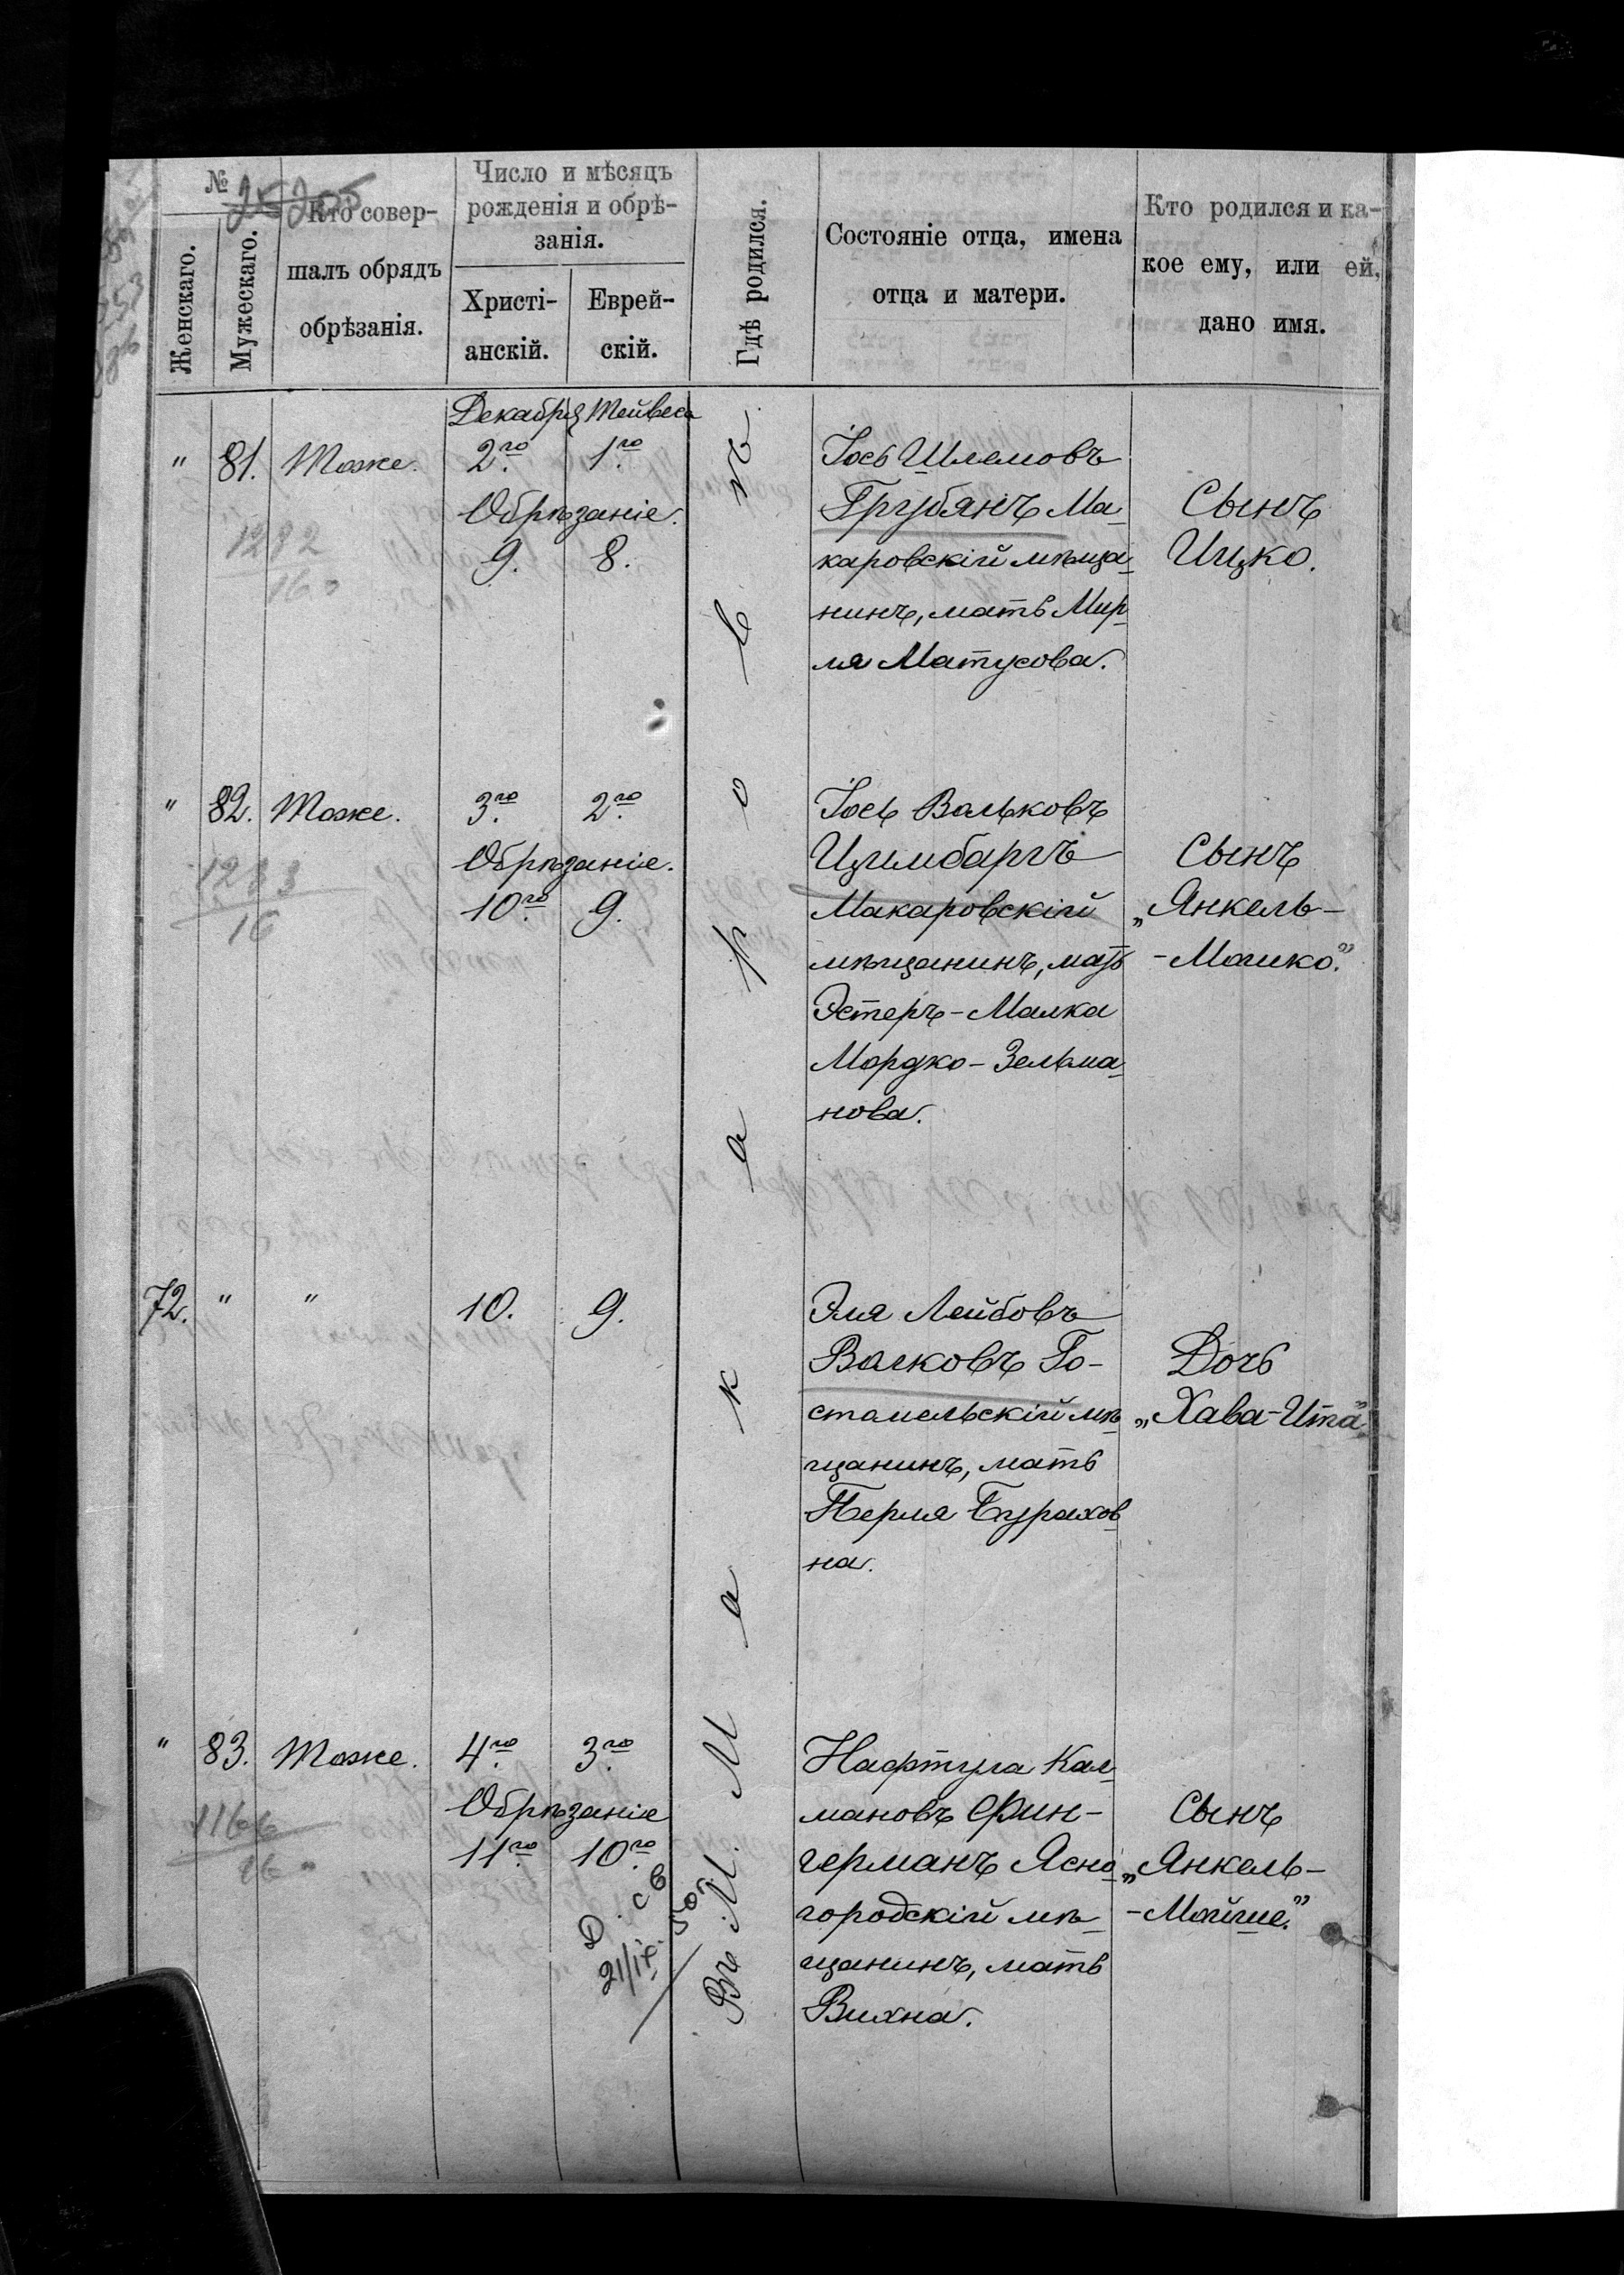 №
25205
Женскаго.
Мужескаго.
Кто совер-
шалъ обрядъ
обрѣзанія.
Число и мѣсяцъ
рожденія и обрѣ-
занія.
Христі-
анскій.
Еврей-
скій.
Гдѣ родился.
Состояніе отца, имена
отца и матери.
Кто родился и ка-
кое ему, или ей,
дано имя.
Въ М. Макаровѣ.
Декабря Тейвеса
" 81. Тоже. 2го. 1го.
Обрѣзаніе.
9. 8.
1282
16
Іось Шлемовъ
Грубянъ Ма-
каровскій мѣща-
нинъ, мать Мир-
ля Матусова.
Сынъ
Ицко.
" 82. Тоже. 3го. 2го.
Обрѣзаніе.
10го. 9.
1283
16
Іось Вольковъ
Цимбаргъ
Макаровскій
мѣщанинъ, мать
Эстеръ-Малка
Мордко-Зельма-
нова.
Сынъ
„Янкель-
-Мошко."
72. " " 10. 9.
Эля Лейбовъ
Волковъ Го-
стомельскій мѣ-
щанинъ, мать
Перля Бурахов-
на.
Дочь
„Хава-Ита"
" 83. Тоже. 4го. 3го.
Обрѣзаніе
11го. 10го.
1166
16
Д. св
21/IX.
Нафтула Кал-
мановъ Фин-
германъ Ясно-
городскій мѣ-
щанинъ, мать
Вихна.
Сынъ
„Янкель-
-Мойше."